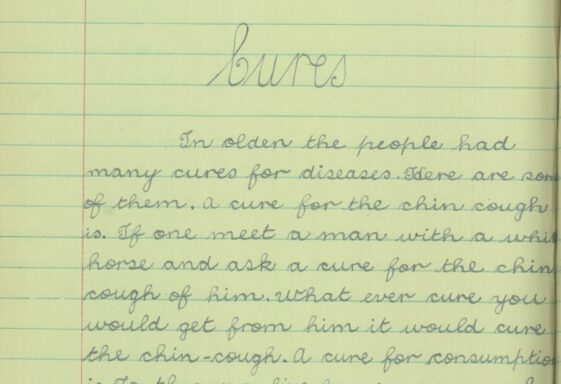 Cures
In olden the people had
many cures for diseases. Here are som
of them. A cure for the chin cough
is. If one meet a man with a whit
horse and ask a cure for the chin
cough of him. What ever cure you
would get from him it would cure
the chin-cough. A cure for consumptio